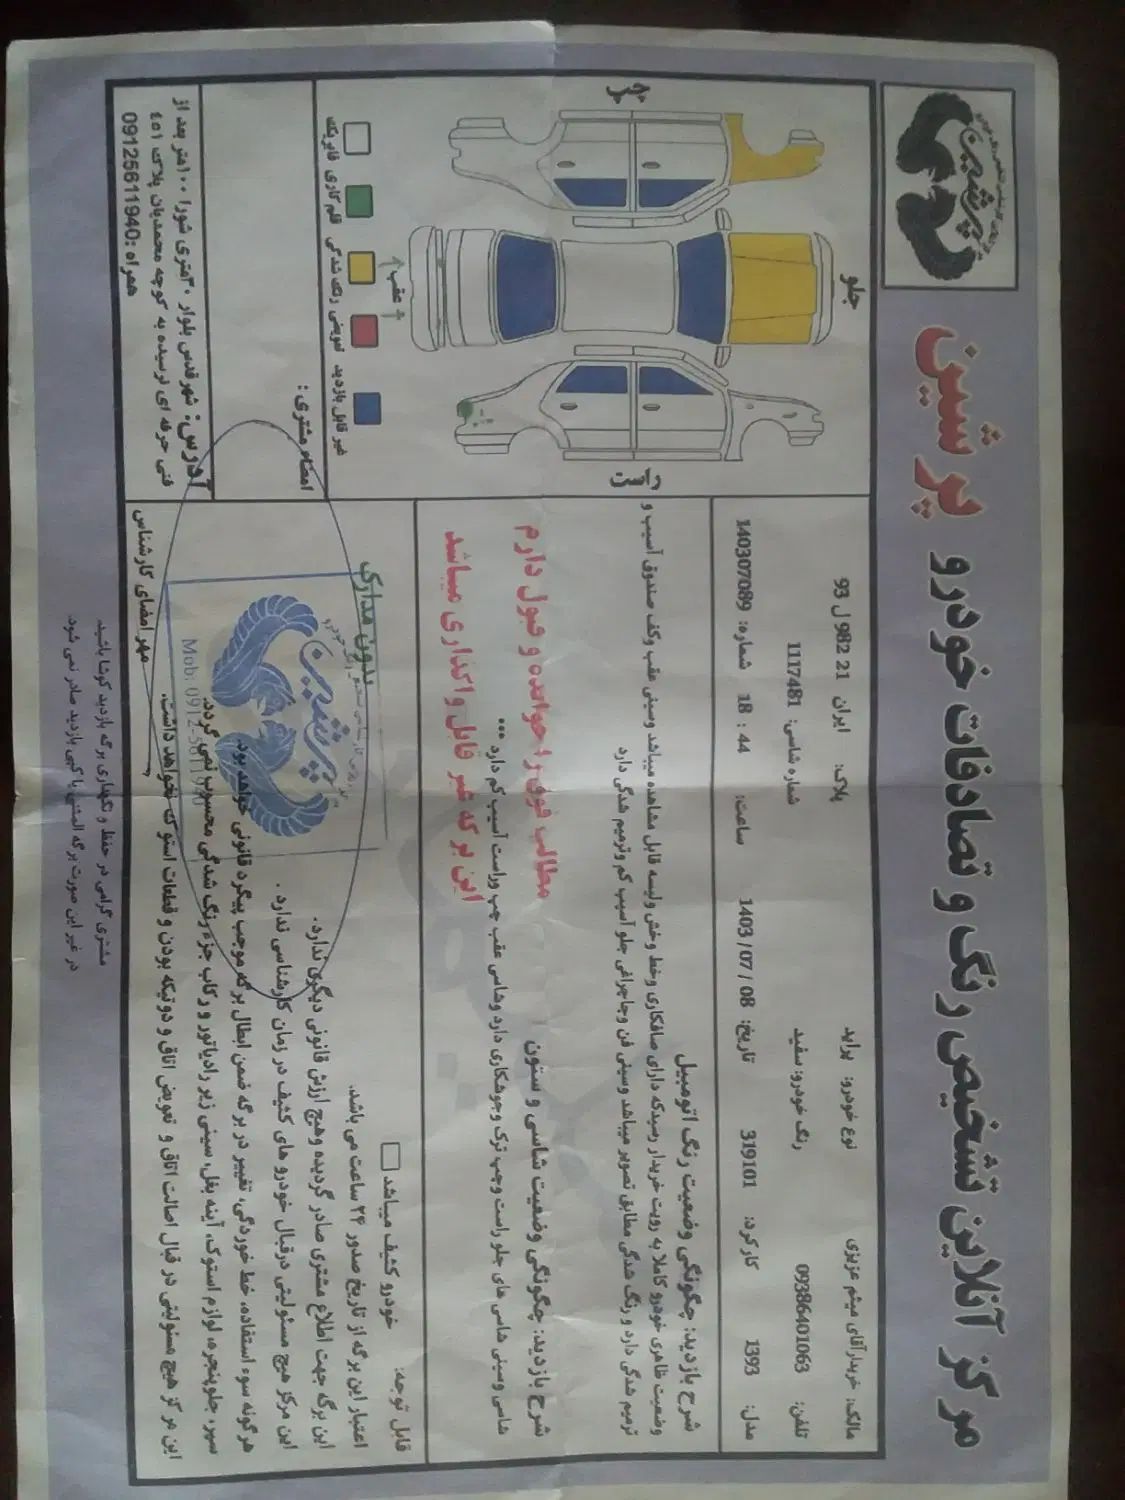 مرکز آنلاین تشخیص رنگ و تصادفات خودرو پرشین
مالک: خریدارآقای میثم عزیزی
نوع خودرو: پراید
پلاک: ایران 21 982 ل 93
تلفن: 09386401063
رنگ خودرو: سفید
شماره شاسی: 1117481
مدل: 1393
کارکرد: 319101
تاریخ: 1403/07/08
ساعت: 18 : 44
شماره: 140307089
شرح بازدید: چگونگی وضعیت رنگ اتومبیل
وضعیت ظاهری خودرو کاملا به رویت خریدار رسیدکه دارای صافکاری وخط وخش ولیسه قابل مشاهده میباشد وسینی عقب وکف صندوق آسیب و
ترمیم شدگی دارد و رنگ شدگی مطابق تصویر میباشد وسینی فن وجاچراغی جلو آسیب کم وترمیم شدگی دارد
شرح بازدید: چگونگی وضعیت شاسی و ستون
شاسی وسینی شاسی های جلو راست وچپ ترک وجوشکاری دارد وشاسی عقب چپ وراست آسیب کم دارد ...
مطالب فوق را خوانده و قبول دارم
این برگه غیر قابل واگذاری میباشد
قابل توجه:
خودرو کثیف میباشد
بدون مدارک
اعتبار این برگه از تاریخ صدور ۲۴ ساعت می باشد.
این برگه جهت اطلاع مشتری صادر گردیده وهیچ ارزش قانونی دیگری ندارد.
این مرکز هیچ مسئولیتی درقبال خودرو های کثیف در زمان کارشناسی ندارد .
هرگونه سوء استفاده، خط خوردگی، تغییر در برگه ضمن ابطال برگه موجب پیگرد قانونی خواهد بود.
سپر، جلوپنجره، لوازم استوک، آینه بغل، سینی زیر رادیاتور و رکاب جزء رنگ شدگی محسوب نمی گردد.
این مرکز هیچ مسئولیتی در قبال اصالت اتاق و تعویض اتاق و دوتیکه بودن و قطعات استوک نخواهد داشت.
مهر امضای کارشناس
پرشین
Mob: 0912
چپ
جلو
عقب
راست
فابریک
قلم کاری
رنگ شدگی
تعویضی
غیر قابل بازدید
امضاء مشتری :
آدرس: شهرقدس بلوار ۳۰متری شورا ۱۰۰متر بعد از
فنی حرفه ای نرسیده به کوچه محمدیان پلاک ٤٥١
همراه :09125611940
مشتری گرامی در حفظ و نگهداری برگه بازدید کوشا باشید
در غیر این صورت برگه المثنی یا کپی بازدید صادر نمی شود